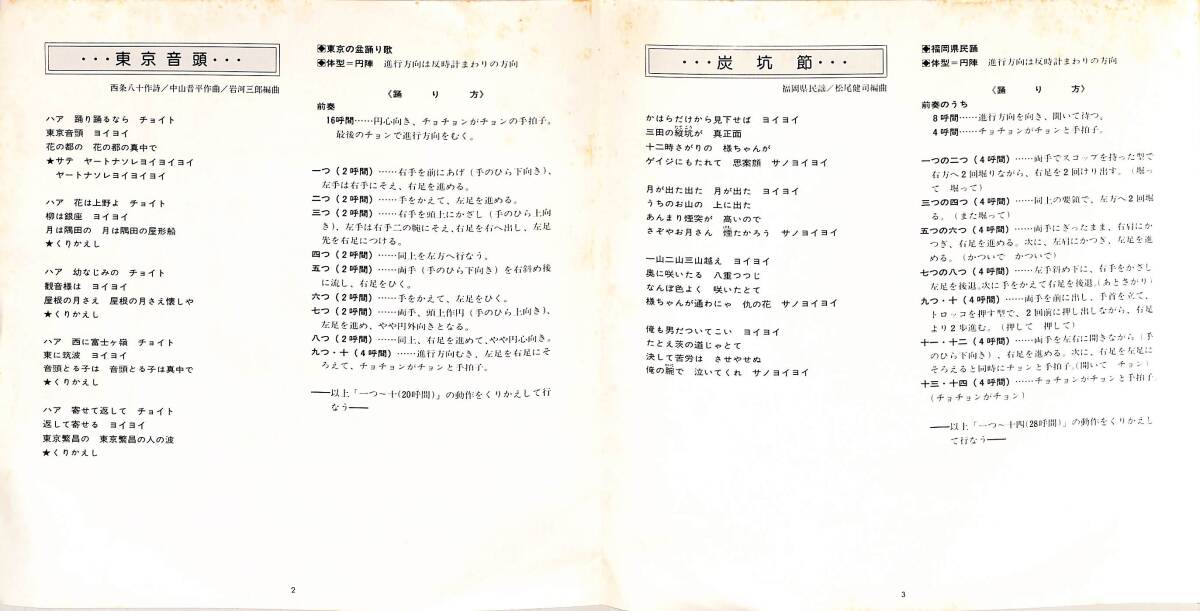 ・・・東京音頭・・・
西条八十作詩／中山晋平作曲／岩河三郎編曲
ハア　踊り踊るなら　チョイト
東京音頭　ヨイヨイ
花の都の　花の都の真中で
★サテ　ヤートナソレヨイヨイヨイ
ヤートナソレヨイヨイヨイ
ハア　花は上野よ　チョイト
柳は銀座　ヨイヨイ
月は隅田の　月は隅田の屋形船
★くりかえし
ハア　幼なじみの　チョイト
観音様は　ヨイヨイ
屋根の月さえ　屋根の月さえ懐しや
★くりかえし
ハア　西に富士ヶ嶺　チョイト
東に筑波　ヨイヨイ
音頭とる子は　音頭とる子は真中で
★くりかえし
ハア　寄せて返して　チョイト
返して寄せる　ヨイヨイ
東京繁昌の　東京繁昌の人の波
★くりかえし
◆東京の盆踊り歌
◆体型＝円陣　進行方向は反時計まわりの方向
《踊り方》
前奏
16呼間……円心向き、チョチョンがチョンの手拍子。
最後のチョンで進行方向をむく。
一つ（２呼間）……右手を前にあげ（手のひら下向き）、
左手は右手にそえ、右足を進める。
二つ（２呼間）……手をかえて、左足を進める。
三つ（２呼間）……右手を頭上にかざし（手のひら上向
き）、左手は右手二の腕にそえ、右足を右へ出し、左足
先を右足につける。
四つ（２呼間）……同上を左方へ行なう、
五つ（２呼間）……両手（手のひら下向き）を右斜め後
に流し、右足をひく。
六つ（２呼間）……手をかえて、左足をひく。
七つ（２呼間）……両手、頭上作円（手のひら上向き）、
左足を進め、やや円外向きとなる。
八つ（２呼間）……同上、右足を進めて、やや円心向き。
九つ・十（４呼間）……進行方向むき、左足を右足にそ
ろえて、チョチョンがチョンと手拍子。
――以上「一つ～十（20呼間）」の動作をくりかえして行
なう――
2
・・・炭坑節・・・
福岡県民謡／松尾健司編曲
かはらだけから見下せば　ヨイヨイ
三田の縦坑が　真正面
十二時さがりの　様ちゃんが
ゲイジにもたれて　思案顔　サノヨイヨイ
月が出た出た　月が出た　ヨイヨイ
うちのお山の　上に出た
あんまり煙突が　高いので
さぞやお月さん　煙たかろう　サノヨイヨイ
一山二山三山越え　ヨイヨイ
奥に咲いたる　八重つつじ
なんぼ色よく　咲いたとて
様ちゃんが通わにゃ　仇の花　サノヨイヨイ
俺も男だついてこい　ヨイヨイ
たとえ茨の道じゃとて
決して苦労は　させやせぬ
俺の腕で　泣いてくれ　サノヨイヨイ
◆福岡県民謡
◆体型＝円陣　進行方向は反時計まわりの方向
《踊り方》
前奏のうち
８呼間……進行方向を向き、開いて待つ。
４呼間……チョチョンがチョンと手拍子。
一つの二つ（４呼間）……両手でスコップを持った型で
右方へ２回堀りながら、右足を２回けり出す。（堀っ
て　堀って）
三つの四つ（４呼間）……同上の要領で、左方へ２回堀
る。（また堀って）
五つの六つ（４呼間）……両手にぎったまま、右肩にか
つぎ、右足を進める。次に、左肩にかつぎ、左足を進
める。（かついで　かついで）
七つの八つ（４呼間）……左手斜め下に、右手をかざし
左足を後退。次に手をかえて右足を後退。（あとさがり）
九つ・十（４呼間）……両手を前に出し、手首を立て、
トロッコを押す型で、２回前に押し出しながら、右足
より２歩進む。（押して　押して）
十一・十二（４呼間）……両手を左右に開きながら（手
のひら下向き）、右足を進める。次に、右足を左足に
そろえると同時にチョンと手拍子。（開いて　チョン）
十三・十四（４呼間）……チョチョンがチョンと手拍子。
（チョチョンがチョン）
――以上「一つ～十四（28呼間）」の動作をくりかえし
て行なう――
3